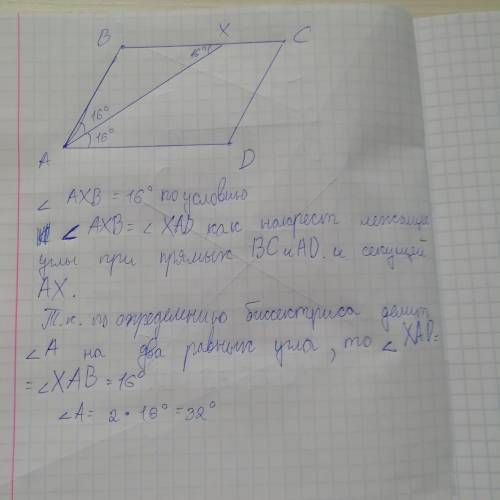 B X C
16°
16°
16°
A D
∠ AXB = 16° по условию
∠ AXB = ∠ XAD как накрест лежащие
углы при прямых BC и AD. и секущей
AX.
Т.к. по определению биссектриса делит
∠A на два равных угла, то ∠ XAD=
= ∠XAB = 16°
∠A = 2 • 16° = 32°